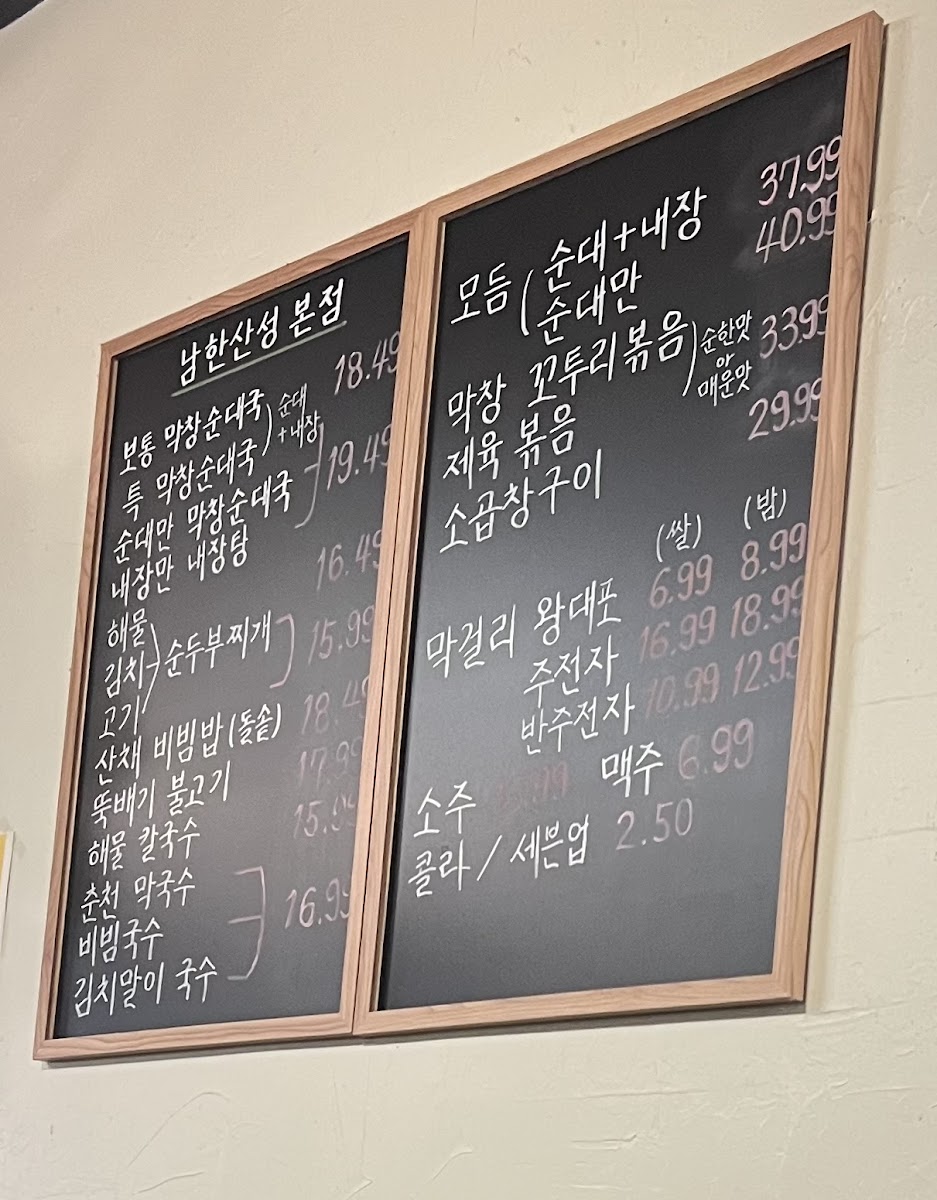 남한산성 본점
보통 막창순대국 18.49
특 막창순대국 순대+내장
순대만 막창순대국 19.49
내장만 내장탕
해물 16.49
김치 순두부찌개 15.99
고기
산채 비빔밥 (돌솥) 18.49
뚝배기 불고기 17.99
해물 칼국수 15.99
춘천 막국수
비빔국수 16.99
김치말이 국수
모듬 (순대+내장 37.99
순대만 40.99
막창 꼬투리볶음) 순한맛 or 매운맛 33.99
제육 볶음 29.99
소곱창구이
(쌀) (밤)
막걸리 왕대포 6.99 8.99
주전자 16.99 18.99
반주전자 10.99 12.99
소주 맥주 6.99
콜라 / 세븐업 2.50